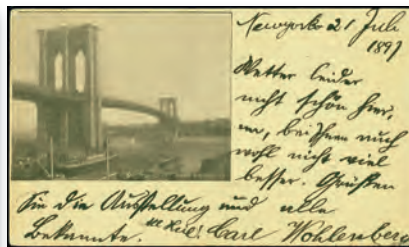 Newyork 21 Juli
1897
Wetter leider
nicht schön hier,
bei Ihnen auch
wohl nicht viel
besser. Grüßen
Sie die Ausstellung und alle
Bekannte. Carl Wohlenberg